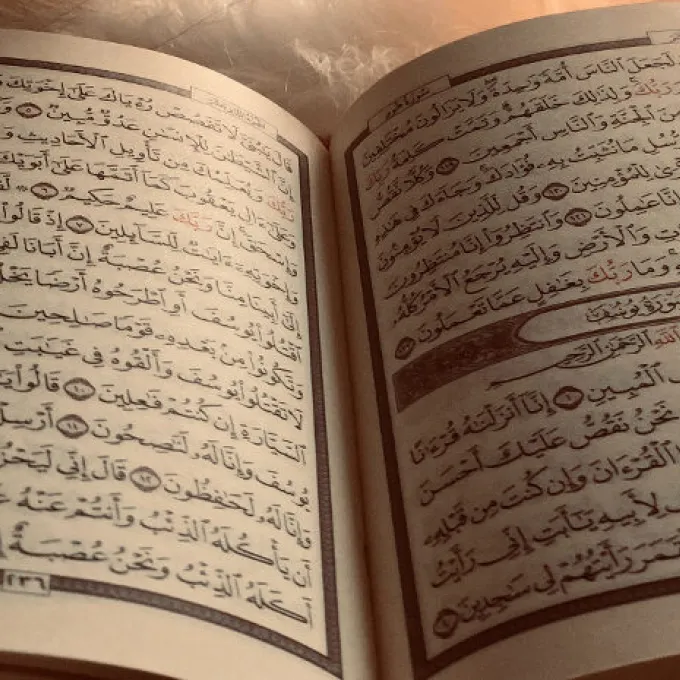 سُورَةُ هُودٍ
لَجَعَلَ ٱلنَّاسَ أُمَّةً وَٰحِدَةً وَلَا يَزَالُونَ مُخْتَلِفِينَ
رَبُّكَ وَلِذَٰلِكَ خَلَقَهُمْ وَتَمَّتْ كَلِمَةُ رَبِّكَ
مِنَ ٱلْجِنَّةِ وَٱلنَّاسِ أَجْمَعِينَ ١١٩ وَكُلًّا نَّقُصُّ
مَا نُثَبِّتُ بِهِۦ فُؤَادَكَ وَجَآءَكَ فِي هَٰذِهِ
لِلْمُؤْمِنِينَ ١٢٠ وَقُل لِّلَّذِينَ لَا يُؤْمِنُونَ
إِنَّا عَٰمِلُونَ ١٢١ وَٱنتَظِرُوٓا۟ إِنَّا مُنتَظِرُونَ
وَٱلْأَرْضِ وَإِلَيْهِ يُرْجَعُ ٱلْأَمْرُ كُلُّهُۥ
وَمَا رَبُّكَ بِغَٰفِلٍ عَمَّا تَعْمَلُونَ ١٢٣
سُورَةُ يُوسُفَ
ٱللَّهِ ٱلرَّحْمَٰنِ ٱلرَّحِيمِ
ٱلْمُبِينِ ١ إِنَّآ أَنزَلْنَٰهُ قُرْءَٰنًا
نَحْنُ نَقُصُّ عَلَيْكَ أَحْسَنَ
ٱلْقُرْءَانَ وَإِن كُنتَ مِن قَبْلِهِۦ
لِأَبِيهِ يَٰٓأَبَتِ إِنِّي رَأَيْتُ
رَأَيْتُهُمْ لِي سَٰجِدِينَ ٤
قَالَ يَٰبُنَيَّ لَا تَقْصُصْ رُءْيَاكَ عَلَىٰٓ إِخْوَتِكَ
إِنَّ ٱلشَّيْطَٰنَ لِلْإِنسَٰنِ عَدُوٌّ مُّبِينٌ ٥
رَبُّكَ وَيُعَلِّمُكَ مِن تَأْوِيلِ ٱلْأَحَادِيثِ
وَعَلَىٰٓ ءَالِ يَعْقُوبَ كَمَآ أَتَمَّهَا عَلَىٰٓ أَبَوَيْكَ
وَإِسْحَٰقَ إِنَّ رَبَّكَ عَلِيمٌ حَكِيمٌ ٦
وَإِخْوَتِهِۦٓ ءَايَٰتٌ لِّلسَّآئِلِينَ ٧ إِذْ قَالُوا۟
إِلَىٰٓ أَبِينَا مِنَّا وَنَحْنُ عُصْبَةٌ إِنَّ أَبَانَا لَفِي
ٱقْتُلُوا۟ يُوسُفَ أَوِ ٱطْرَحُوهُ أَرْضًا
وَتَكُونُوا۟ مِنۢ بَعْدِهِۦ قَوْمًا صَٰلِحِينَ
لَا تَقْتُلُوا۟ يُوسُفَ وَأَلْقُوهُ فِي غَيَٰبَتِ
ٱلسَّيَّارَةِ إِن كُنتُمْ فَٰعِلِينَ ١٠ قَالُوا۟
يُوسُفَ وَإِنَّا لَهُۥ لَنَٰصِحُونَ ١١
وَإِنَّا لَهُۥ لَحَٰفِظُونَ ١٢ قَالَ إِنِّي
أَن يَأْكُلَهُ ٱلذِّئْبُ وَأَنتُمْ عَنْهُ
أَكَلَهُ ٱلذِّئْبُ وَنَحْنُ عُصْبَةٌ
٢٣٦